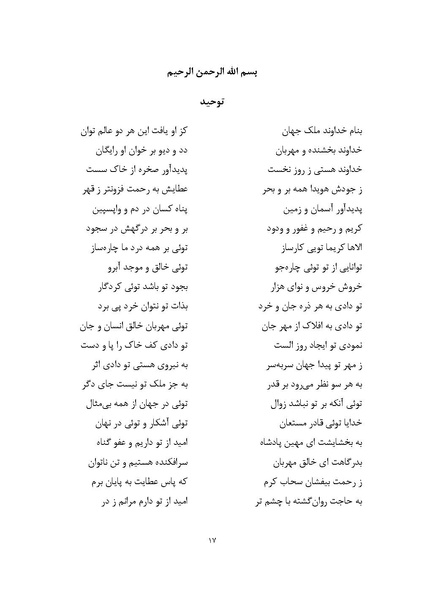 بسم الله الرحمن الرحیم
توحید
بنام خداوند ملک جهان کز او یافت این هر دو عالم توان
خداوند بخشنده و مهربان دد و دیو بر خوان او رایگان
خداوند هستی ز روز نخست پدیدآور صخره از خاک سست
ز جودش هویدا همه بر و بحر عطایش به رحمت فزونتر ز قهر
پدیدآور آسمان و زمین پناه کسان در دم و واپسین
کریم و رحیم و غفور و ودود بر و بحر بر درگهش در سجود
الاها کریما تویی کارساز توئی بر همه درد ما چاره‌ساز
توانایی از تو توئی چاره‌جو توئی خالق و موجد آبرو
خروش خروس و نوای هزار بجود تو باشد توئی کردگار
تو دادی به هر ذره جان و خرد بذات تو نتوان خرد پی برد
تو دادی به افلاک از مهر جان توئی مهربان خالق انسان و جان
نمودی تو ایجاد روز الست تو دادی کف خاک را پا و دست
ز مهر تو پیدا جهان سربه‌سر به نیروی هستی تو دادی اثر
به هر سو نظر می‌رود بر قدر به جز ملک تو نیست جای دگر
توئی آنکه بر تو نباشد زوال توئی در جهان از همه بی‌مثال
خدایا توئی قادر مستعان توئی آشکار و توئی در نهان
به بخشایشت ای مهین پادشاه امید از تو داریم و عفو گناه
بدرگاهت ای خالق مهربان سرافکنده هستیم و تن ناتوان
ز رحمت بیفشان سحاب کرم که پاس عطایت به پایان برم
به حاجت روان‌گشته با چشم تر امید از تو دارم مرانم ز در
۱۷